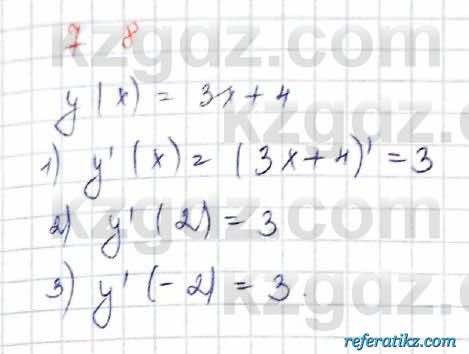 7 8
y(x) = 3x+4
1) y'(x) = (3x+4)' = 3
2) y'(2) = 3
3) y'(-2) = 3.
kzgdz.com
kzgdz.com
kzgdz.com
referatikz.com